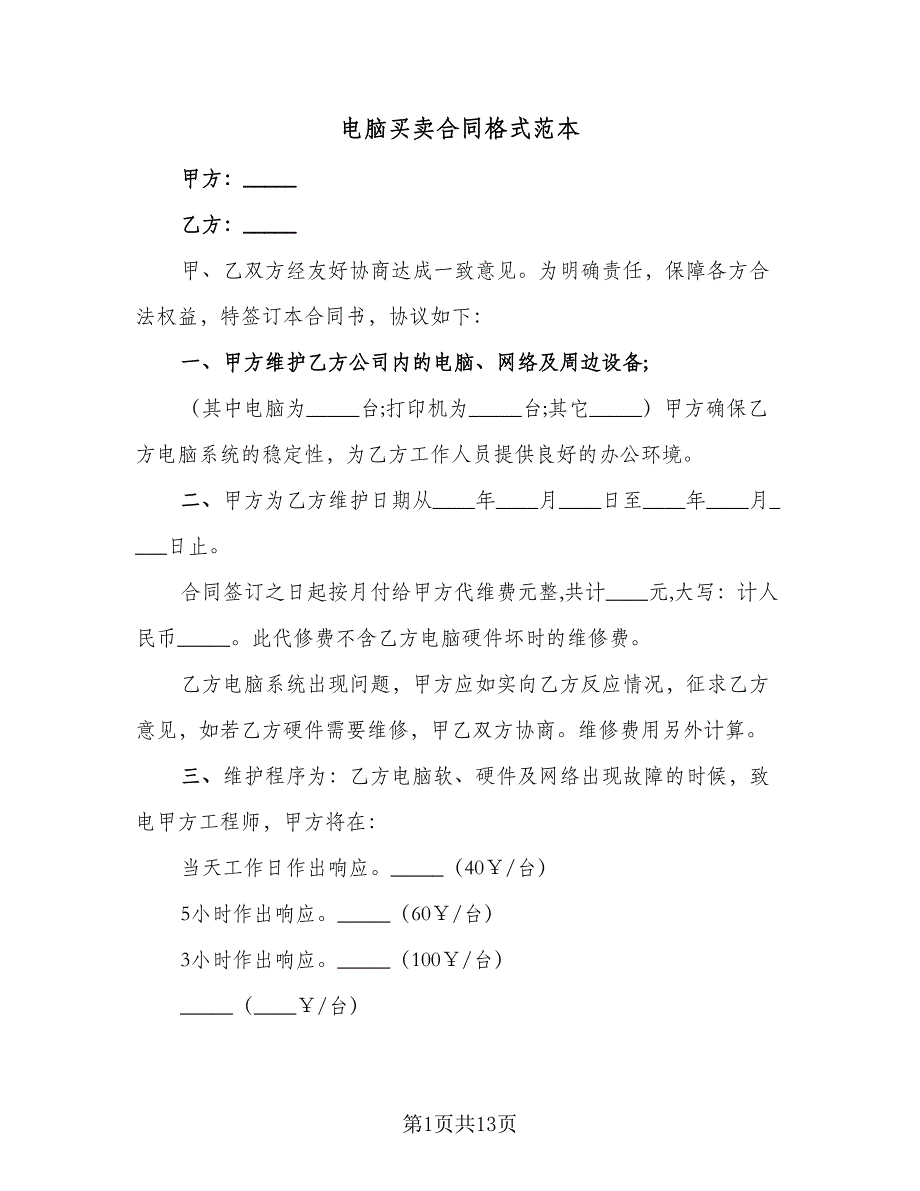 电脑买卖合同格式范本
甲方：_____
乙方：_____
甲、乙双方经友好协商达成一致意见。为明确责任，保障各方合
法权益，特签订本合同书，协议如下：
一、甲方维护乙方公司内的电脑、网络及周边设备;
（其中电脑为_____台;打印机为_____台;其它_____）甲方确保乙
方电脑系统的稳定性，为乙方工作人员提供良好的办公环境。
二、甲方为乙方维护日期从____年____月____日至____年____月_
___日止。
合同签订之日起按月付给甲方代维费元整,共计____元,大写：计人
民币_____。此代修费不含乙方电脑硬件坏时的维修费。
乙方电脑系统出现问题，甲方应如实向乙方反应情况，征求乙方
意见，如若乙方硬件需要维修，甲乙双方协商。维修费用另外计算。
三、维护程序为：乙方电脑软、硬件及网络出现故障的时候，致
电甲方工程师，甲方将在：
当天工作日作出响应。_____（40￥/台）
5小时作出响应。_____（60￥/台）
3小时作出响应。_____（100￥/台）
_____（____￥/台）
第1页共13页